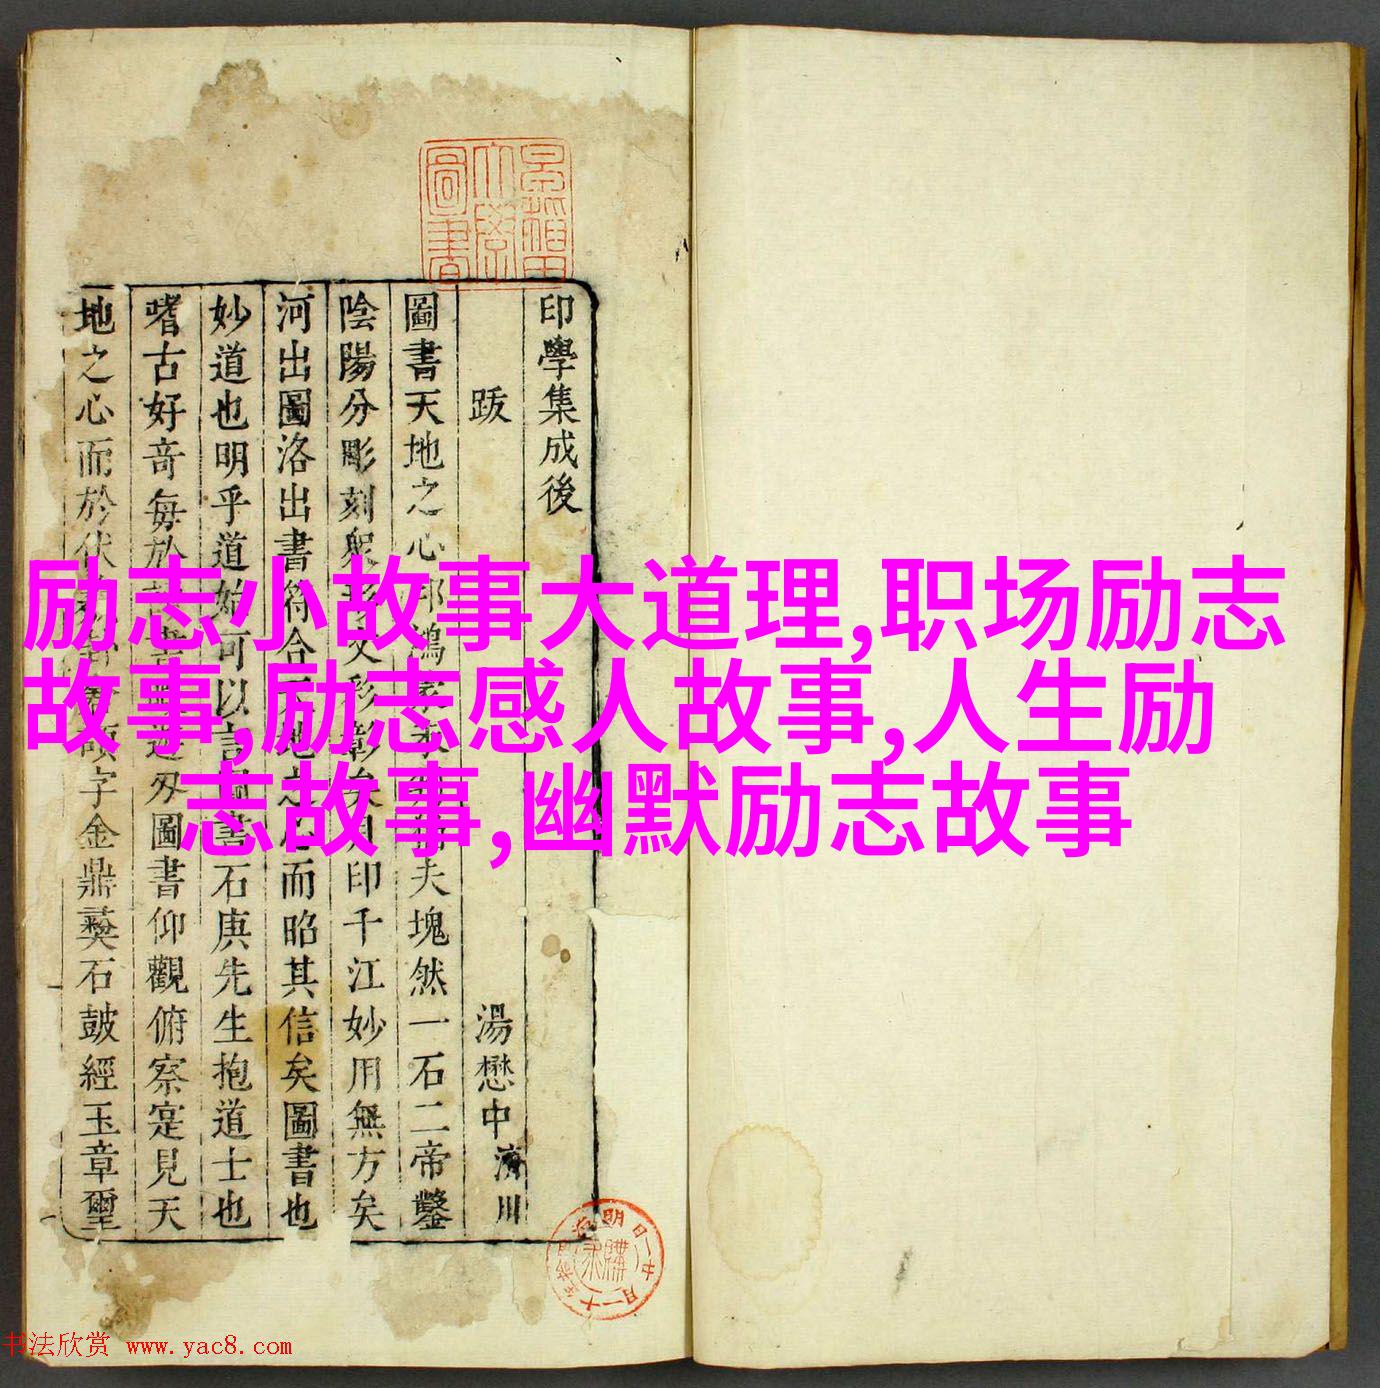 励志小故事大道理,职场励志
故事,励志感人故事,人生励
志故事,幽默励志故事
印學集成後
跋
湯懋中 濟川
圖書天地之心 然一石二帝鑿
陰陽分彫刻 印千江妙用無方矣
河出圖洛出書符合 而昭其信矣圖書也
妙道也明乎道始可以言 書石庚先生抱道士也
嗜古好竒每於 圖書仰觀俯察寔見天
地之心而於 字金鼎彝石鼓經玉章璽
書法欣赏 www.yac8.com